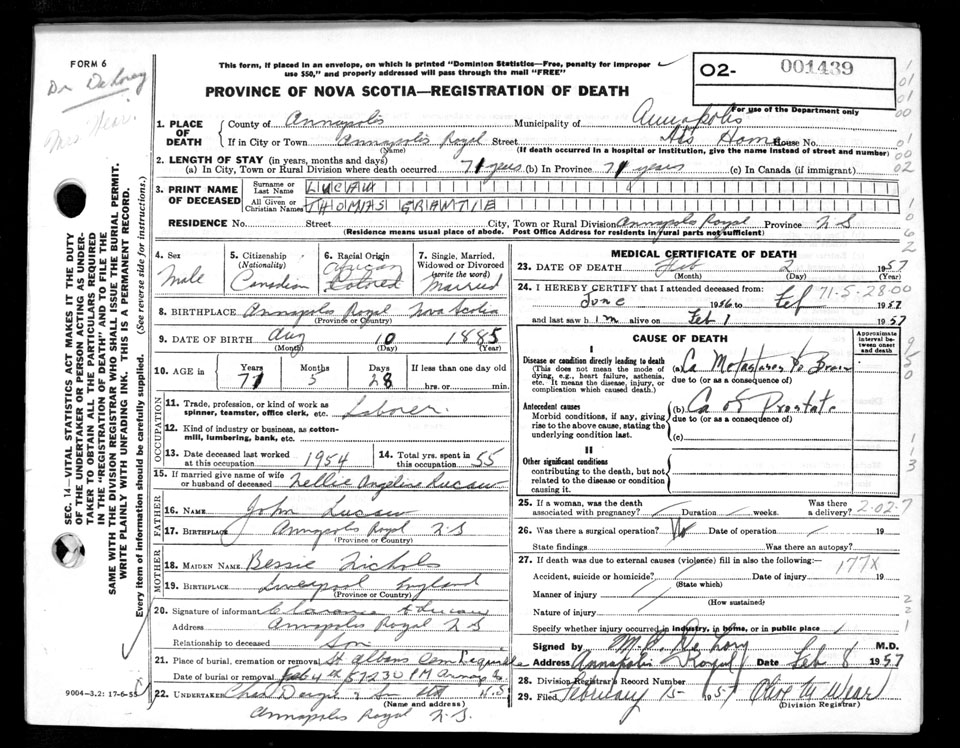 FORM 6
Dr DeLorey
Mrs Wear.
This form, if placed in an envelope, on which is printed "Dominion Statistics—Free, penalty for improper
use $50," and properly addressed will pass through the mail "FREE"
PROVINCE OF NOVA SCOTIA—REGISTRATION OF DEATH
02- 001439
For use of the Department only
1. PLACE OF DEATH County of Annapolis Municipality of Annapolis
If in City or Town Annapolis Royal Street His Home House No.
(Name) (If death occurred in a hospital or institution, give the name instead of street and number)
2. LENGTH OF STAY (in years, months and days)
(a) In City, Town or Rural Division where death occurred 71 years (b) In Province 71 years (c) In Canada (if immigrant)
3. PRINT NAME OF DECEASED
Surname or Last Name LUCAW
All Given or Christian Names THOMAS
RESIDENCE No. Street City, Town or Rural Division Annapolis Royal Province N S
(Residence means usual place of abode. Post Office Address for residents in rural parts not sufficient)
4. Sex Male
5. Citizenship (Nationality) Canadian
6. Racial Origin African Colored
7. Single, Married, Widowed or Divorced (write the word) Married
8. BIRTHPLACE Annapolis Royal Nova Scotia
(Province or Country)
9. DATE OF BIRTH Aug 10 1885
(Month) (Day) (Year)
10. AGE in Years 71 Months 5 Days 28 If less than one day old hrs. or min.
OCCUPATION
11. Trade, profession, or kind of work as spinner, teamster, office clerk, etc. Laborer.
12. Kind of industry or business, as cotton-mill, lumbering, bank, etc.
13. Date deceased last worked at this occupation 1954
14. Total yrs. spent in this occupation 55
15. If married give name of wife or husband of deceased Nellie Angeline Lucaw
FATHER
16. NAME John Lucaw
17. BIRTHPLACE Annapolis Royal N S
(Province or Country)
MOTHER
18. MAIDEN NAME Bessie Nichols
19. BIRTHPLACE Liverpool England
(Province or Country)
20. Signature of informant Clarence Lucaw
Address Annapolis Royal N S
Relationship to deceased Son
21. Place of burial, cremation or removal St Albans Cem Lequille
Date of burial or removal Feb 4th 57 2 30 PM
22. UNDERTAKER
(Name and address)
Annapolis Royal N.S.
9004—3.2: 17-6-55
SEC. 14—VITAL STATISTICS ACT MAKES IT THE DUTY
OF THE UNDERTAKER OR PERSON ACTING AS UNDER-
TAKER TO OBTAIN ALL THE PARTICULARS REQUIRED
IN THE "REGISTRATION OF DEATH" AND TO FILE THE
SAME WITH THE DIVISION REGISTRAR WHO SHALL ISSUE THE BURIAL PERMIT.
WRITE PLAINLY WITH UNFADING INK. THIS IS A PERMANENT RECORD.
Every item of information should be carefully supplied. (See reverse side for instructions.)
MEDICAL CERTIFICATE OF DEATH
23. DATE OF DEATH Feb 2 1957
(Month) (Day) (Year)
24. I HEREBY CERTIFY that I attended deceased from
June 1956 to Feb 1957
71-5-28-00
and last saw him alive on Feb 1 1957
CAUSE OF DEATH
Approximate interval between onset and death
I
Disease or condition directly leading to death
(This does not mean the mode of dying, e.g., heart failure, asthenia, etc. It means the disease, injury, or complication which caused death.)
(a) Ca Metastases to Brain
due to (or as a consequence of)
Antecedent causes
Morbid conditions, if any, giving rise to the above cause, stating the underlying condition last.
(b) Ca of Prostate
due to (or as a consequence of)
(c)
II
Other significant conditions
contributing to the death, but not related to the disease or condition causing it.
25. If a woman, was the death associated with pregnancy? Duration weeks. Was there a delivery? 2-02-7
26. Was there a surgical operation? No Date of operation 19
State findings Was there an autopsy?
27. If death was due to external causes (violence) fill in also the following:—
177X
Accident, suicide or homicide? Date of injury 19
(State which)
Manner of injury
(How sustained)
Nature of injury
Specify whether injury occurred in industry, in home, or in public place
Signed by De Lory M.D.
Address Annapolis Royal Date Feb 8 1957
28. Division Registrar's Record Number
29. Filed February 15 1957 Olive M Wear
(Division Registrar)